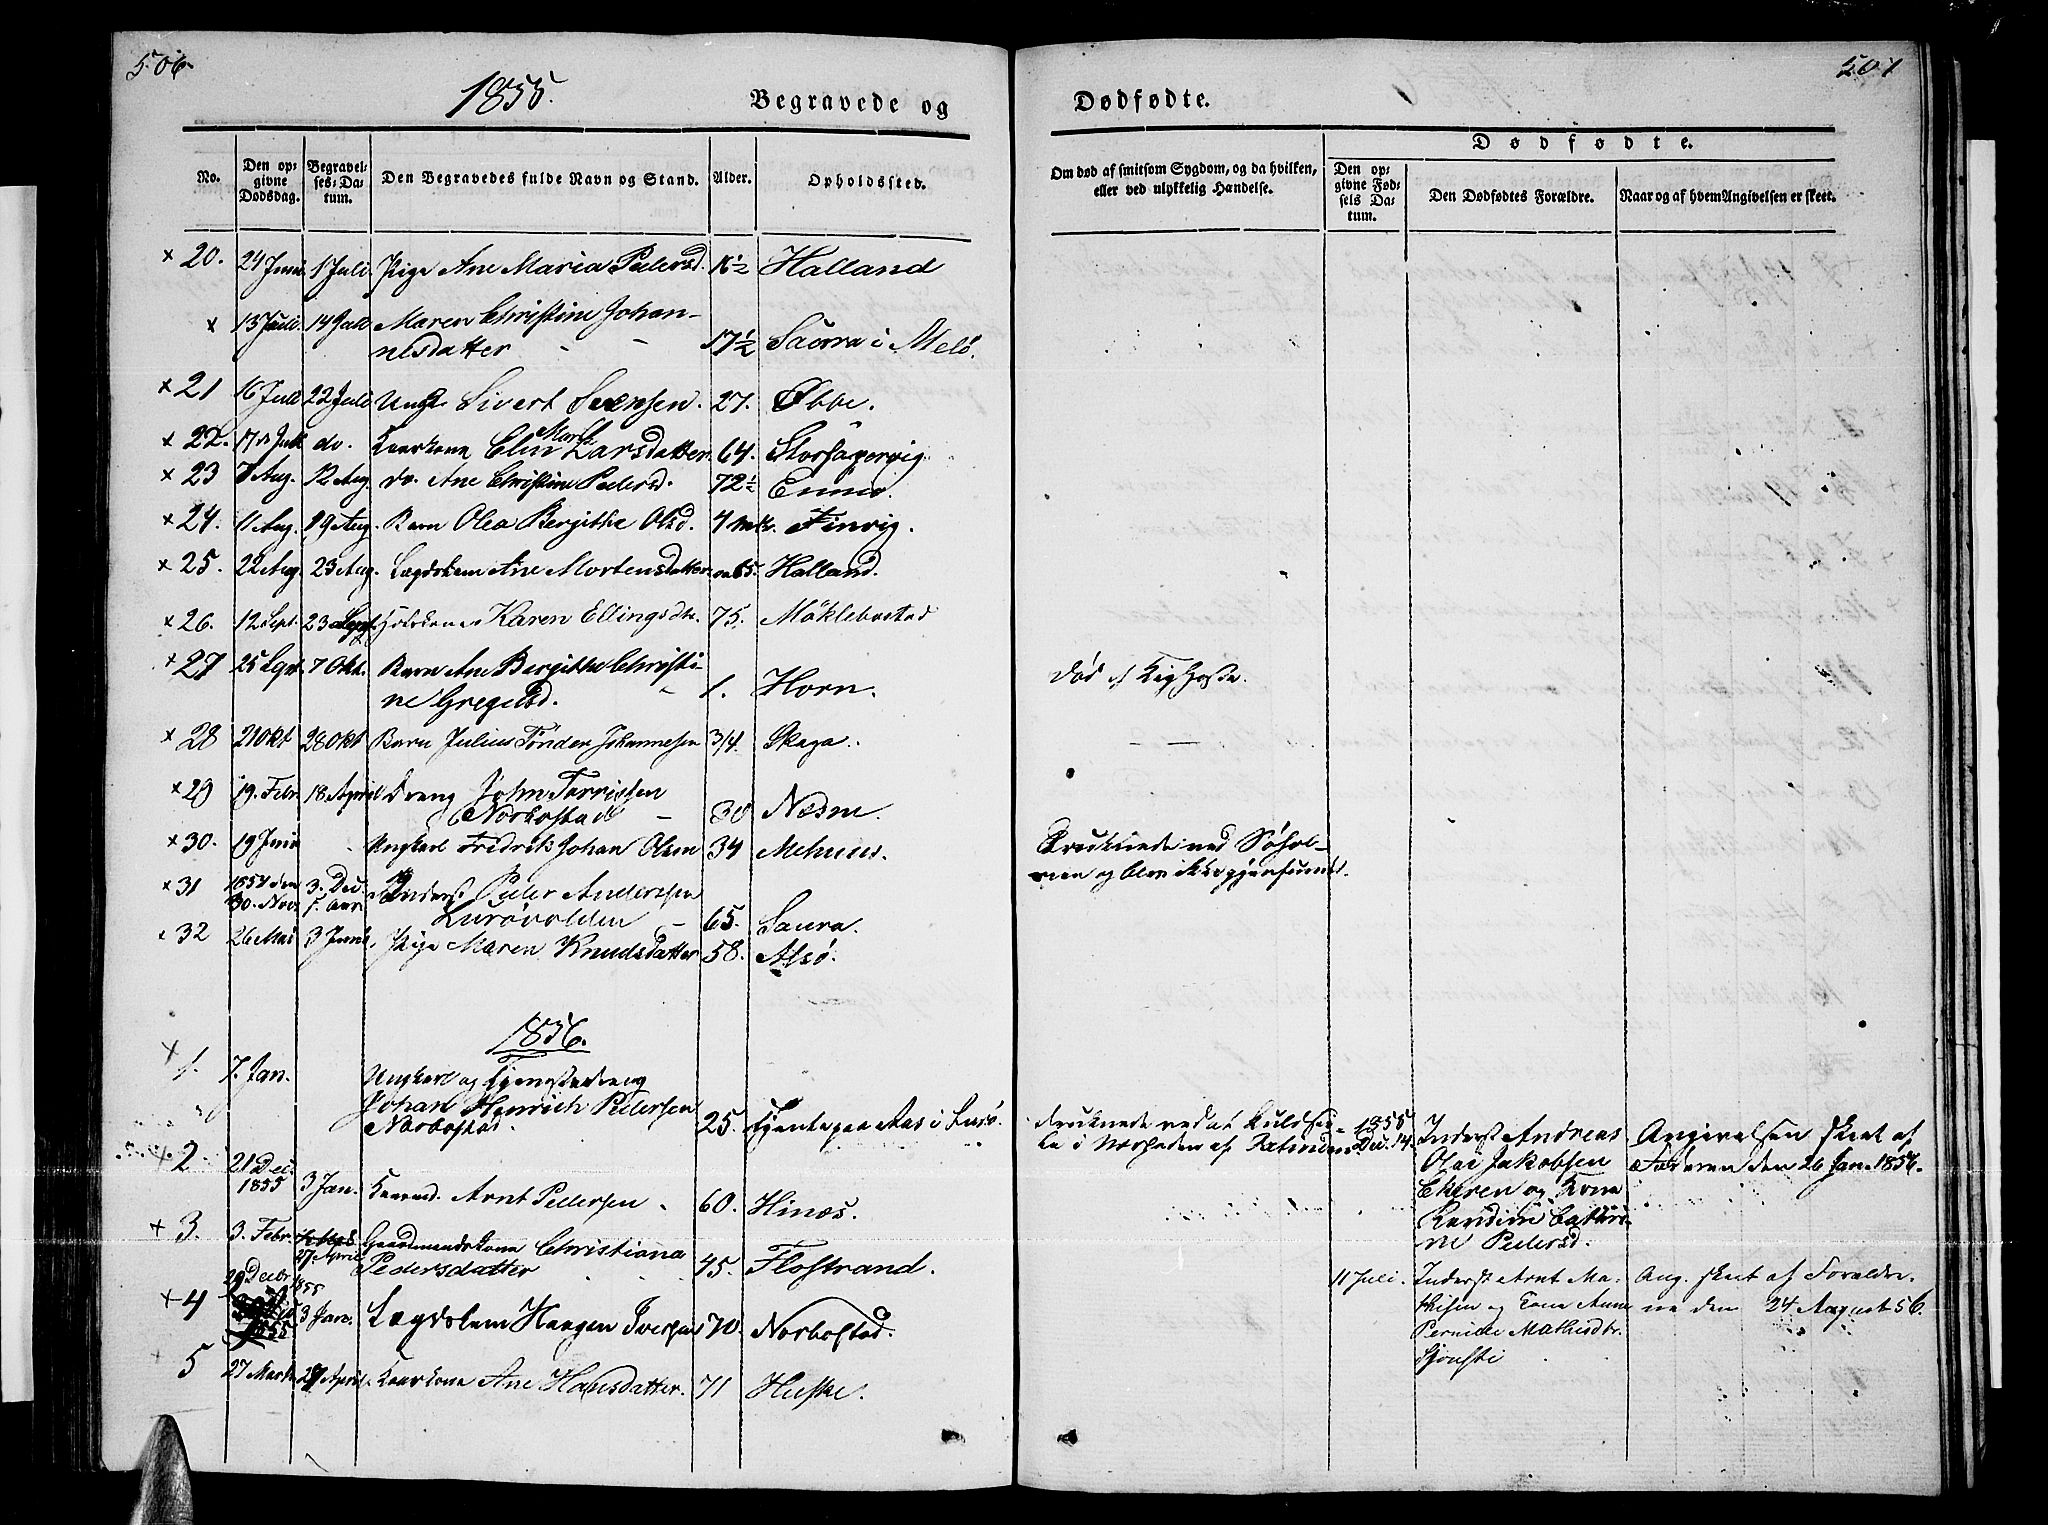 506.
1855.
Begravede og
No.
Den op-
givne
Dødsdag.
Begravel-
ses-Da-
tum.
Den Begravedes fulde Navn og Stand.
Alder.
Opholdssted.
× 20. 24 Juni 1 Juli. Pige Ane Maria Pedersd. 16½ Halland
× 13 Juli. 14 Juli Maren Christine Johan-
nesdatter 17½ Saura i Melö.
× 21 16 Juli 22 Juli Ungk. Sivert Svensen. 27. Øbbe.
× 22. 17 Juli do. Kaarkone Elen Marth Larsdatter. 64. Storselsøervig
× 23 7 Aug. 12 Aug. do. Ane Christine Pedersd. 72½ Ennes.
× 24. 11 Aug. 19 Aug. Barn Olea Bergithe Olsd. 4 Finvig.
× 25. 22 Aug. 23 Aug. Lægdslem Ane Mortensdatter 65. Halland.
× 26. 12 Sept. 23 Sept. Karen Ellingsdtr. 75. Möklebostad
× 27 25 Sept. 7 Okt. Barn Ane Bergithe Christi-
ne Gregersd. 1. Horn.
× 28 21 Okt 28 Okt Barn Julius Tönder Johannesen 3/4. Skaga.
× 29 19. Febr. 18 April Dreng John Torrissen
Norbostad 30 Næsne.
× 30. 19 Juni Ungkarl Fredrik Johan Olsen 34 Mehuus.
× 31 1854 den
30. Nov. 3. Dec.
f. Aar Inderst Peder Anderssen
Lurövolden 65. Saura.
× 32 26 Mai 3 Juni. Pige Maren Knudsdatter 58. Alsö.
1856.
× 1. 7. Jan. Ungkarl og Tjenestedreng
Johan Henrich Pedersen
Norbostad. 25. Tjente paa Aas i Lurö.
× 2 21 Dec.
1855 3 Jan. Kaarmd. Arnt Pedersen 60. Hinæs.
× 3. 3. Febr. 27. April Gaardmandskone Christiana
Pedersdatter 45. Flostrand.
× 4 29 Decbr 1855
1855 3 Jan. Lægdslem Haagen Iversen 70. Norbostad.
5 27 Marts 27 April. Kaarkone Ane Hansdatter. 71 Huske.
507
Dødfødte.
Om død af smitsom Sygdom, og da hvilken,
eller ved ulykkelig Hændelse.
Dødfødte.
Den op-
givne Fød-
sels Da-
tum.
Den Dødfødtes Forældre.
Naar og af hvem Angivelsen er skeet.
død af Kighoste.
— —
Druknede ved Søhol-
men og blev ikke gjenfunden.
druknede ved at kuldsei-
le i
1855
Dec. 14.
Inderst Andreas
Olai Jakobsen
Ekeren og Kone
Randine Cathri-
ne Pedersd.
Angivelsen skeet af
Faderen den 26 Jan. 1856.
11 Juli.
Inderst Arnt Ma-
thisen og Kone Anne
Pernille Mathisdtr.
Sjonsti
Ang. skeet af Foreldre-
ne den 24 August 56.